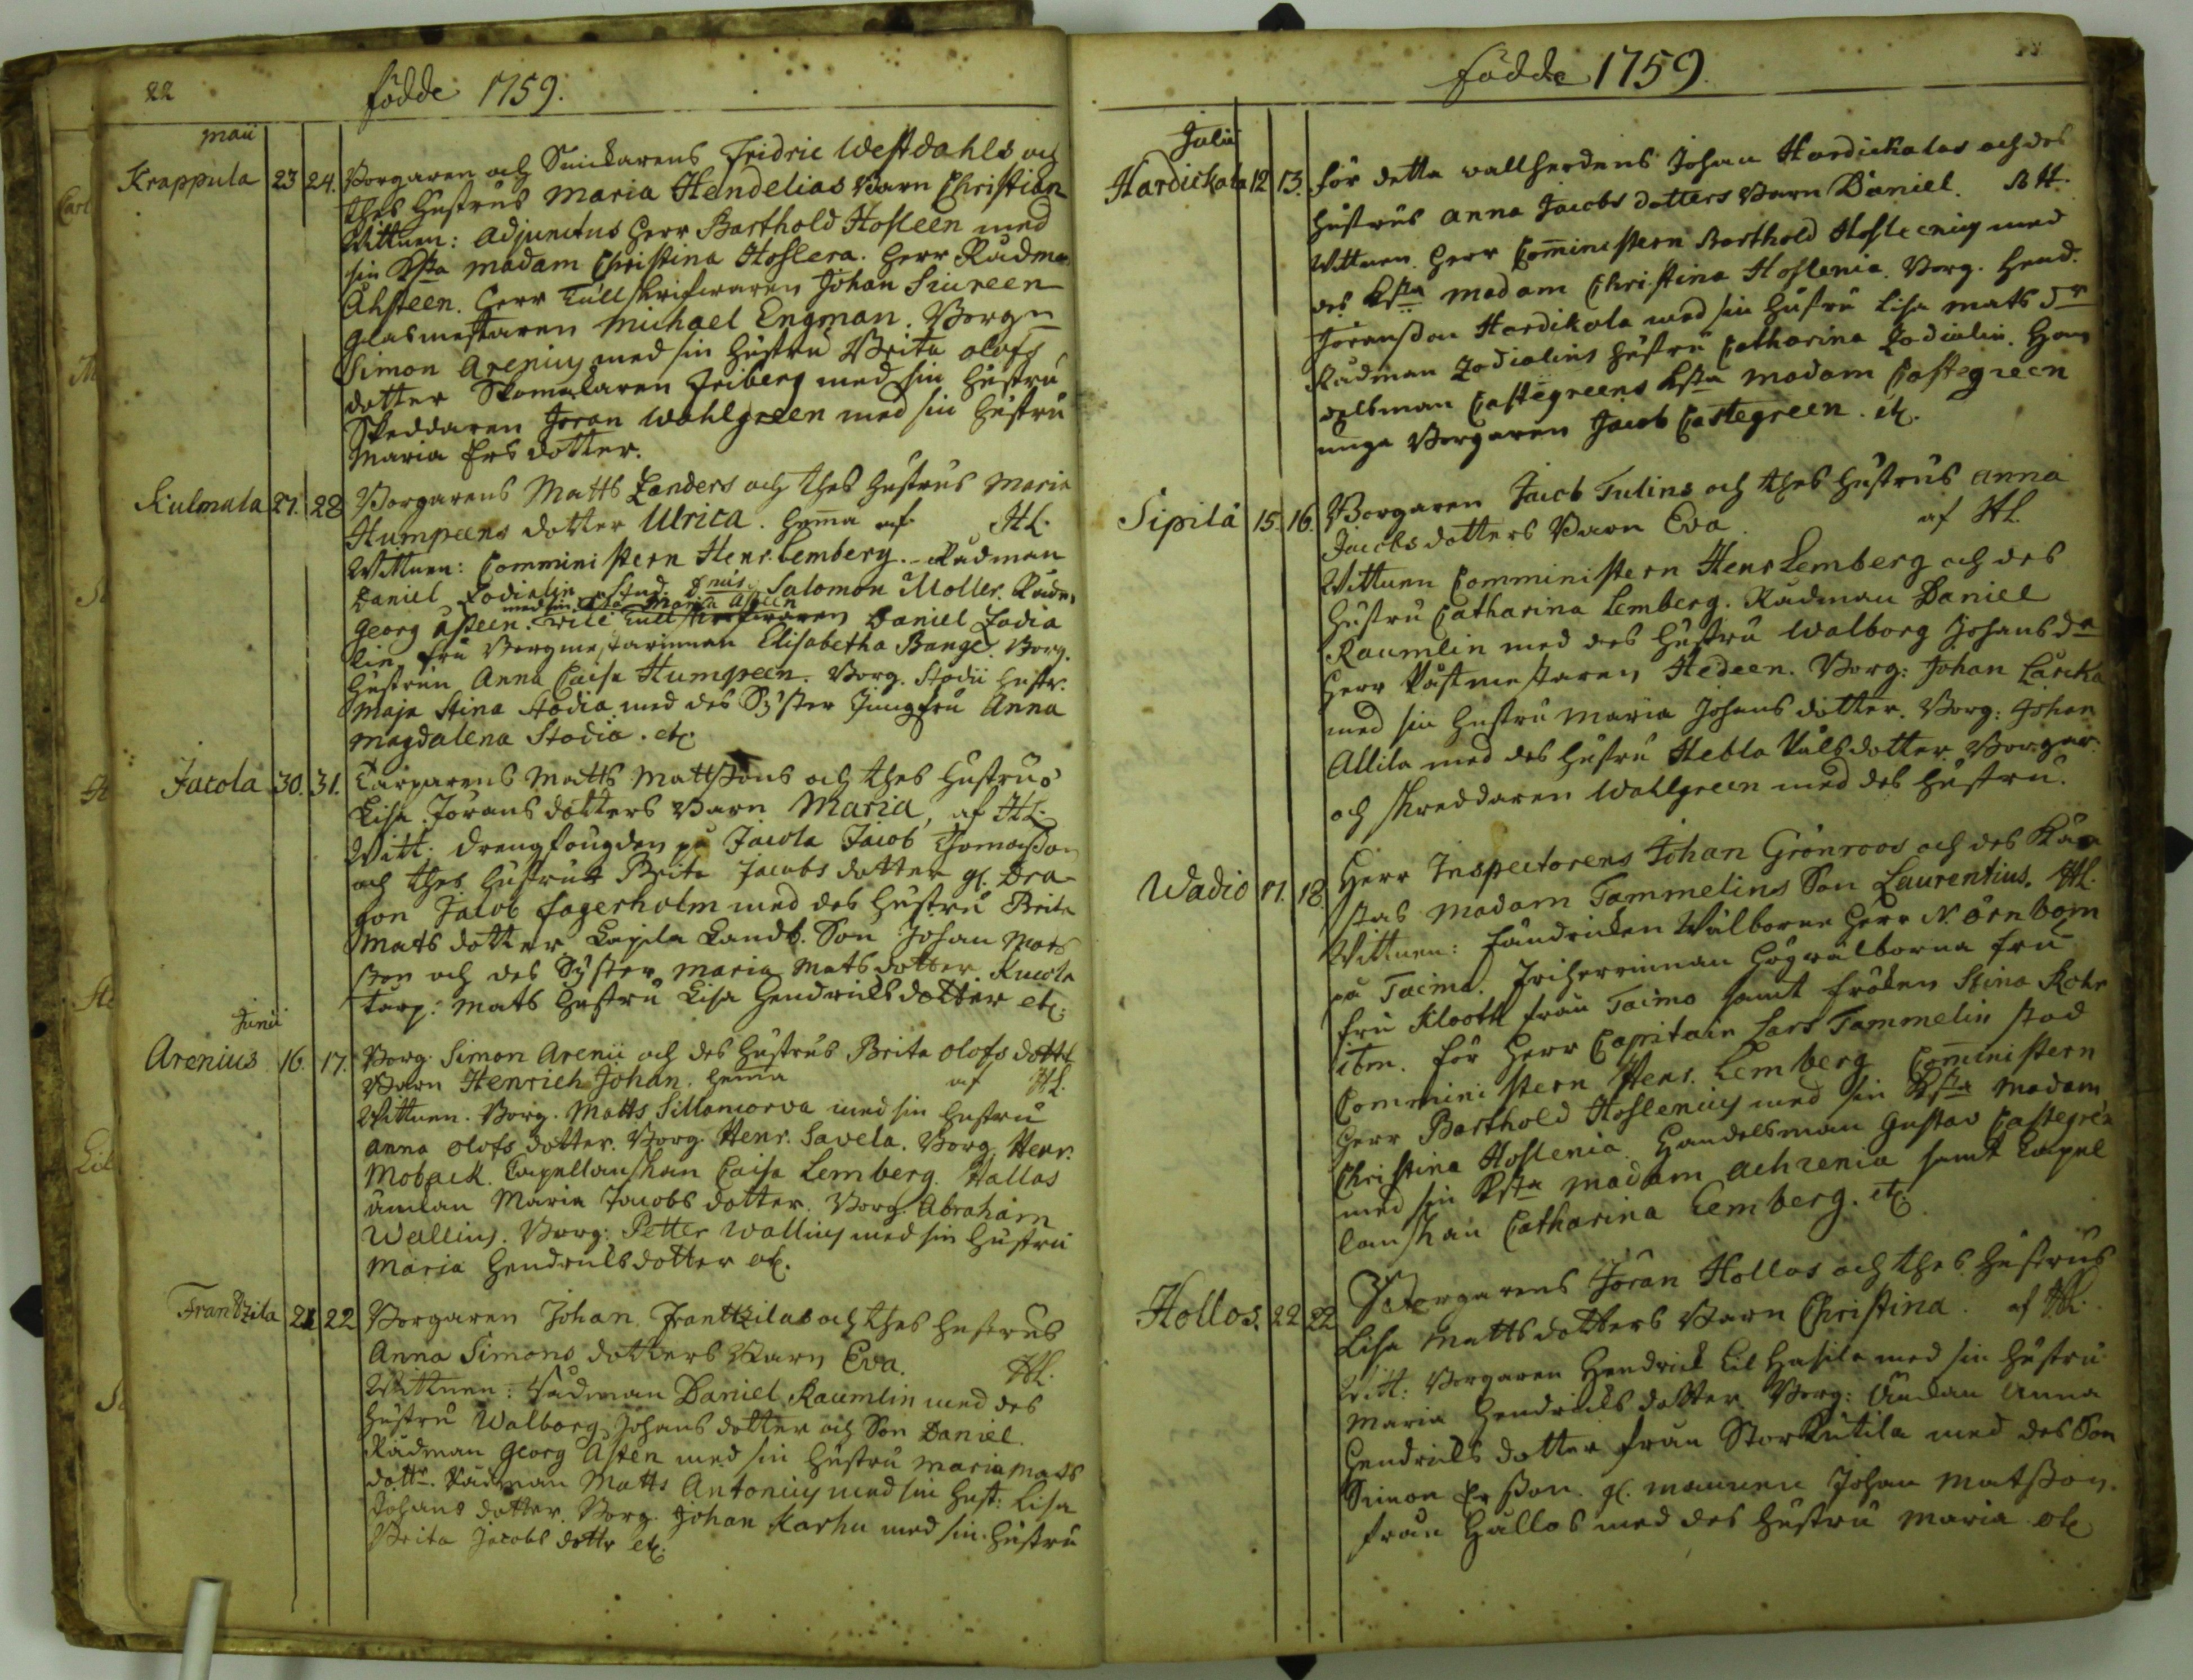 22
födde 1759.
Maii
Krappula 23 24. Borgaren och Snickarens Fridric Westdahls och
thes hustrus Maria Hendelias Barn Christian
Wittnen: Adjunctus Herr Barthold Hosleen med
sin K:sta Madam Christina Hoslera. Herr Rådm.
Åhsteen. Herr Tullskrifwaren Johan Siureen
Glasmestaren Michael Engman. Borg:n
Simon Arenius med sin hustru Brita Olofs
dotter Skomakaren Friberg med sin hustru
Skreddaren Joran Wahlgreen med sin hustru
Maria Ersdotter.
Kulmala 27. 28 Borgarens Matts Landers och thes hustrus Maria
Humpeens dotter Ulrica. hema af HL.
Wittnen: Comministern Henr. Lemberg. Rådman
Daniel Zodialin, stud. Dnus. Salomon Moller. Rådm.
med sin K:sta Maria Asteen
Georg Åsteen. Tullskrifwaren Daniel Zodia
lin, fru Borgmestarinnan Elisabetha Bange. Borg.
hustrun Anna Caisa Humpeen. Borg. Stodii hustr.
Maja Stina Stodia med des Syster Jungfru Anna
Magdalena Stodia. etc.
Jacola 30. 31. Tarparens Matts Mattssons och thes hustrus
Lisa Joransdotters Barn Maria, af HL.
Witt. drengfougden på Jacola Jacob Thomasson
och thes hustru Brita Jacobsdotter gl. Dra-
gon Jacob Fagerholm med des hustru Brita
Matsdotter Lapila Landb. Son Johan Mats
son och des Syster Maria Matsdotter Kucola
Tarp: Mats hustru Lisa Hendricksdotter etc.
Junii
Arenius 16. 17. Borg. Simon Arenii och des hustrus Brita Olofsdott:
Barn Henrich Johan. hema af HL.
Wittnen. Borg. Matts Sillancorva med sin hustru
Anna Olofsdotter. Borg. Henr. Savela. Borg. Henr.
Moback. Capellanskan Caisa Lemberg. Hallas
änckan Maria Jacobsdotter. Borg. Abraham
Wallius. Borg: Petter Wallius med sin hustru
Maria Hendricksdotter etc.
Frantzila 21 22 Borgaren Johan Franttzilas och thes hustrus
Anna Simonsdotters Barn Eva. HL.
Wittnen: Rådman Daniel Raumlin med des
hustru Walborg Johansdotter och Son Daniel.
Rådman Georg Åsten med sin hustru Maria Mats
dott:r. Rådman Matts Antonius med sin hust: Lisa
Johansdotter. Borg. Johan Karhu med sin hustru
Brita Jacobsdottr etc.
födde 1759.
Julii
Hardickala 12 13. för detta wallherdens Johan Hardickalas och des
hustrus Anna Jacobsdotters Barn Daniel. BH.
Wittnen. Herr Comministern Barthold Hoslenius med
des K:sta Madam Christina Hoslenia. Borg. Hend.
Joransson Hardikala med sin hustru Lisa Mats dr
Rådman Zodialins hustru Catharina Zodialin. Han
delsman Castegreens K:sta Madam Castegreen
unga Borgaren Jacob Castegreen. etc.
Sipilä 15. 16. Borgaren Jacob Tulins och thes hustrus Anna
Jacobsdotters Barn Eva af HL.
Wittnen Comministern Henr Lemberg och des
hustru Catharina Lemberg. Rådman Daniel
Raumlin med des hustru Walborg Johansdr
Herr Påstmestaren Hedeen. Borg: Johan Lärcka
med sin hustru Maria Johansdotter. Borg: Johan
Allila med des hustru Hebla Pålsdotter Borgar.
och Skreddaren Wahlgreen med des hustru.
Wadio 17. 18. Herr Inspectorens Johan Grönroos och des Kära
stas Madam Tammelins Son Laurentius. HL.
Wittnen: Fändricken Wälborne Herr N. Örnbom
på Taimo. Friherrinnan Högwälborna fru
fru Klootk från Taimo samt fröken Stina Rohr
ibm. för Herr Capitain Lars Tammelin stod
Comministern Henr. Lemberg Cominist​ern
Herr Barthold Hoslenius med sin K:sta Madam
Christina Hoslenia. Handelsman Gustav Castegren
med sin K:sta Madam Achrenia samt Capel
lanskan Catharina Lemberg. etc.
Hollos. 22 22 Borgarens Jöran Hollos och thes hustrus
Lisa Mattsdotters Barn Christina. af HL.
Witt: Borgaren Hendrick Lil Hasila med sin hustru
Maria Hendricksdotter Borg: Änckan Anna
Hendricksdotter från Stor Kutila med des Son
Simon Ersson. gl. mannen Johan Matsson.
från Hallos med des hustru Maria etc